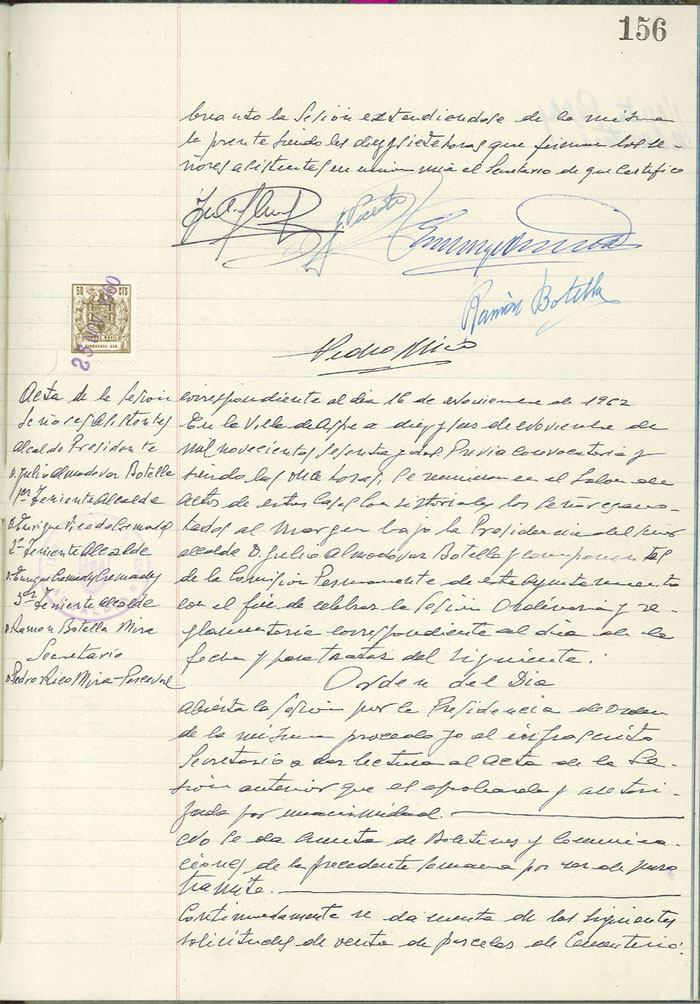 156
levanto la Sesión extendiendose de la misma
la presente siendo las diezysiete horas que firman los se-
ñores asistentes en union mia el Secretario de que Certifico
J. Vicente
Ramón Botella
Pedro Mira
50 CTS
25 NOV 60
Acta de la Sesión correspondiente al dia 16 de Noviembre de 1962
Señores asistentes
Alcalde Presidente
D. Julio Almodovar Botella
1er Teniente Alcalde
D. Enrique Vicedo Cremades
2º Teniente Alcalde
D. Enrique Cremades Cremades
3er Teniente Alcalde
D. Ramon Botella Mira
Secretario
D. Pedro Rico Mira-Perceval
En la Villa de Aspe a diezyseis de Noviembre de
mil novecientos sesenta y dos. Previa convocatoria y
siendo las once horas, se reunieron en el Salon de
actos de estas Casas Consistoriales los señores ano-
tados al margen bajo la Presidencia del señor
alcalde D. Julio Almodovar Botella y componentes
de la Comision Permanente de este Ayuntamiento
con el fin de celebrar la Sesión Ordinaria y re-
glamentaria correspondiente al dia de la
fecha y para tratar del siguiente:
Orden del Dia
abierta la sesion por la Presidencia de Orden
de la misma procedo yo el infrascrito
Secretario a dar lectura al acta de la Se-
sión anterior que es aprobada y autori-
zada por unanimidad.
No se da cuenta de Boletines y Comunica-
ciones de la precedente semana por ser de puro
tramite.
Continuadamente se da cuenta de las siguientes
solicitudes de venta de parcelas de Cementerio: